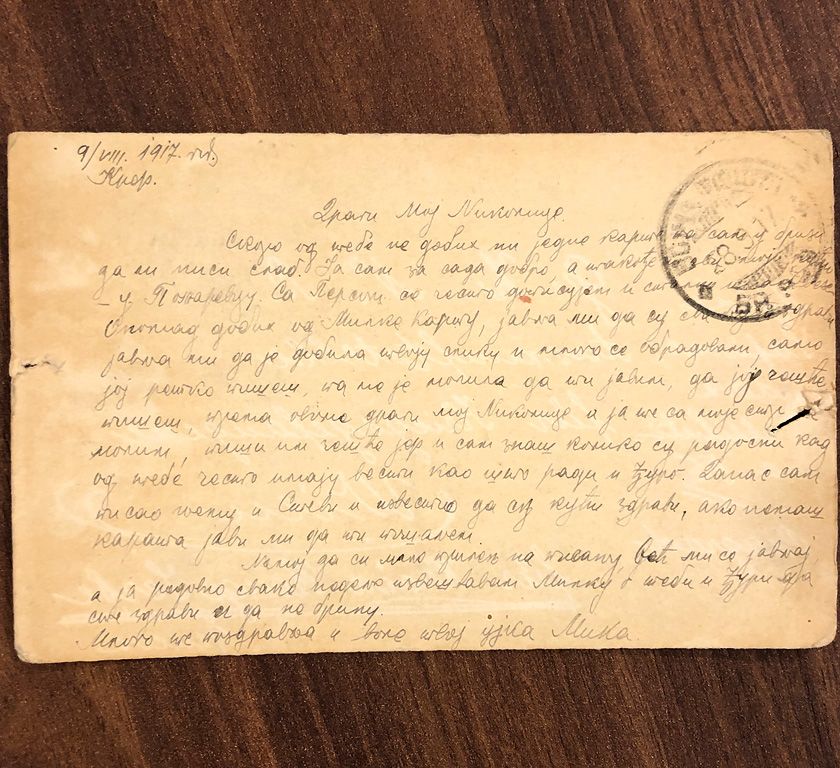 9/VIII. 1917. год.
Крф.
Драги Мој Николице.
Скоро од тебе не добих ни једне карте па сам у бризи
да ли ниси слаб. Ја сам за сада добро, а такође
у Пожаревцу. Са Персом се често дописујем и
Опомад добих од Милке карту, јавља ми да су сви здрави
јавља ми да је добила твоју слику и много се обрадовали, само
јој ретко пишеш, па ме је молила да ти јавим, да јој чешће
пишеш, према овоме драги мој Николице а ја те са моје стр
молим, пиши им чешће јер и сам знаш колико су радосни кад
од тебе често имају вести као што ради и Ђуро. Данас сам
писао и Стеви и известио да су кући здрави, ако немаш
карата јави ми да ти пошалем.
Немој да си мало вредан на писању, већ ми се јављај,
а ја редовно сваке недеље извештавам Милку о теби и Ђури да
сте здрави и да не брину.
Много те поздравља и воле твој ујка Мика.